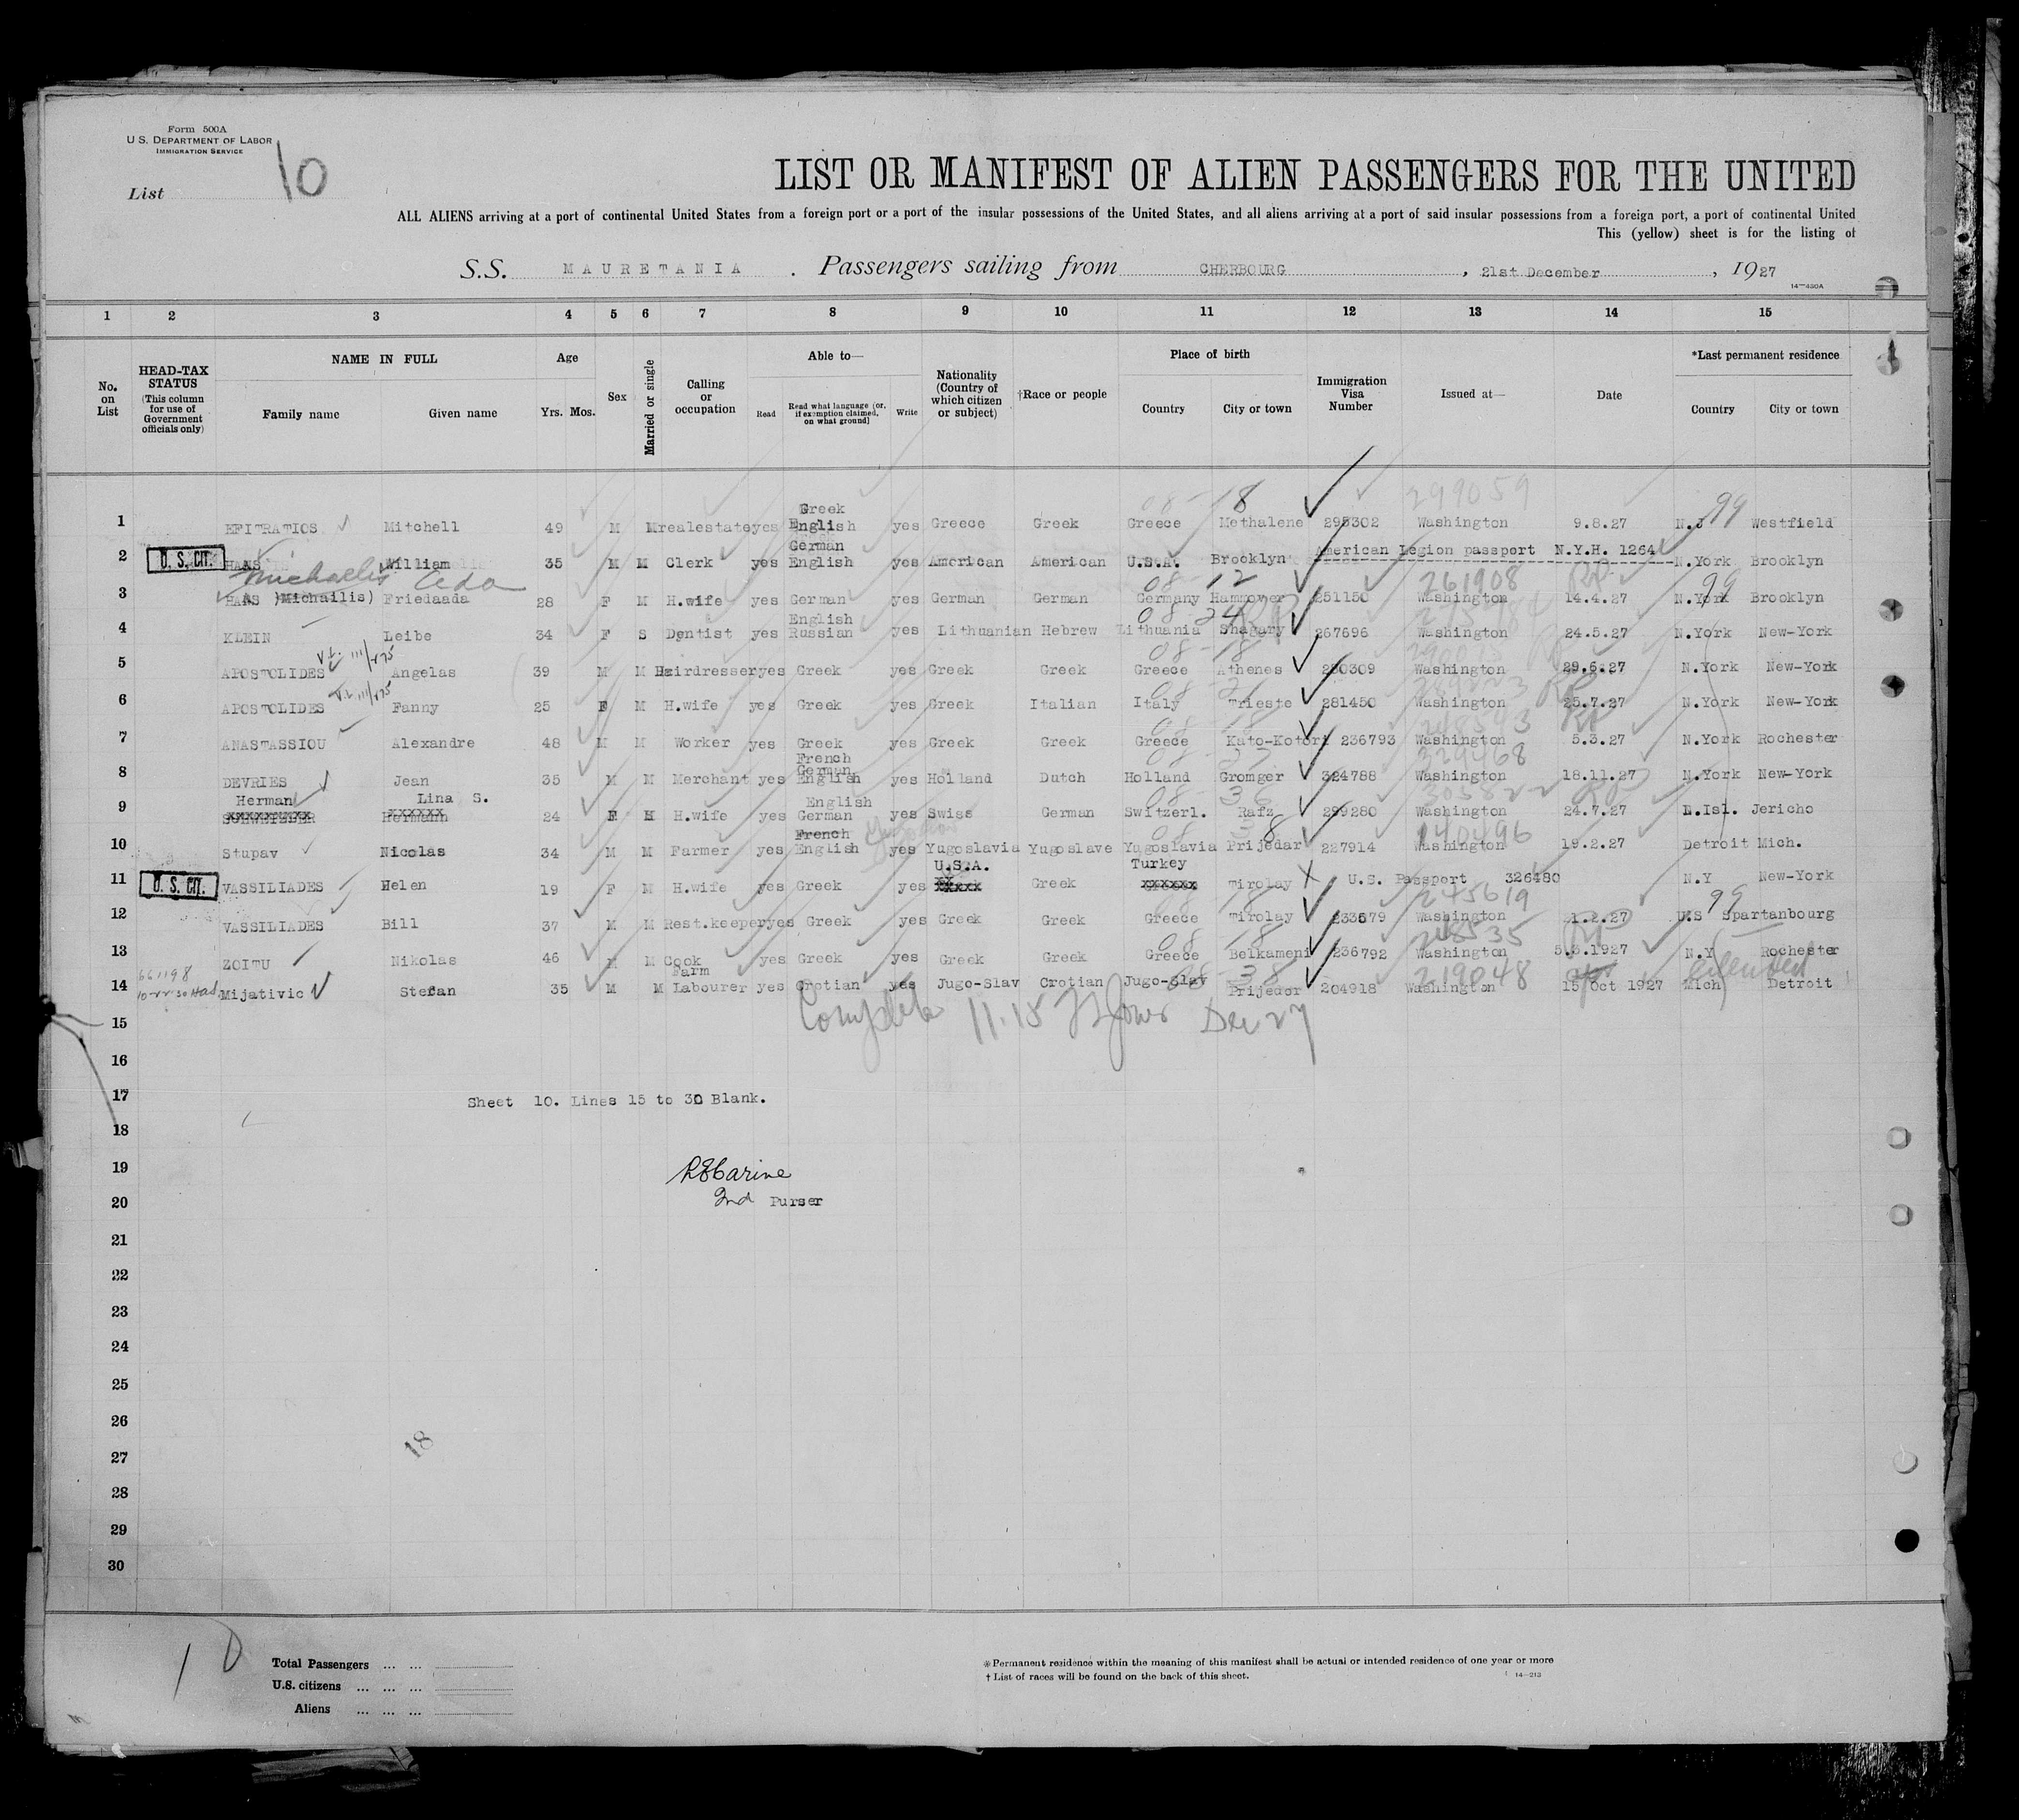 Form 500A
U. S. DEPARTMENT OF LABOR
IMMIGRATION SERVICE
List 10
LIST OR MANIFEST OF ALIEN PASSENGERS FOR THE UNITED
ALL ALIENS arriving at a port of continental United States from a foreign port or a port of the insular possessions of the United States, and all aliens arriving at a port of said insular possessions from a foreign port, a port of continental United
This (yellow) sheet is for the listing of
S.S. MAURETANIA . Passengers sailing from CHERBOURG , 21st December , 1927
14—430A
1 2 3 4 5 6 7 8 9 10 11 12 13 14 15
No. on List
HEAD-TAX STATUS (This column for use of Government officials only)
NAME IN FULL Family name Given name
Age Yrs. Mos.
Sex
Married or single
Calling or occupation
Able to— Read Read what language [or, if exemption claimed, on what ground] Write
Nationality (Country of which citizen or subject)
†Race or people
Place of birth Country City or town
Immigration Visa Number
Issued at—
Date
*Last permanent residence Country City or town
08- 18 299059 99
1 EFITRATIOS Mitchell 49 M M realestate yes Greek English yes Greece Greek Greece Methalene 295302 Washington 9.8.27 N.J Westfield
2 U. S. CIT. HAAS William 35 M M Clerk yes German English yes American American U.S.A. Brooklyn American Legion passport N.Y.H. 1264 N.York Brooklyn
Michaelis Ada 08- 12 261908 RP 99
3 HAAS )Michailis) Friedaada 28 F M H.wife yes German yes German German Germany Hannover 251150 Washington 14.4.27 N.York Brooklyn
08- 24 RP
4 KLEIN Leibe 34 F S Dentist yes English Russian yes Lithuanian Hebrew Lithuania Shagary 267696 Washington 24.5.27 N.York New-York
08- 18
5 APOSTOLIDES Angelas 39 M M Hairdresser yes Greek yes Greek Greek Greece Athenes 280309 Washington 29.6.27 N.York New-York
08- 21 RP
6 APOSTOLIDES Fanny 25 F M H.wife yes Greek yes Greek Italian Italy Trieste 281450 Washington 25.7.27 N.York New-York
08- 18 248543 RP
7 ANASTASSIOU Alexandre 48 M M Worker yes Greek yes Greek Greek Greece Kato-Kotori 236793 Washington 5.3.27 N.York Rochester
329468
8 DEVRIES Jean 35 M M Merchant yes French German English yes Holland Dutch Holland Gromger 324788 Washington 18.11.27 N.York New-York
Herman Lina S. 08- 36 305822 RP
9 xxxxxxxxxx Hermann 24 F M H.wife yes English German yes Swiss German Switzerl. Rafz 299280 Washington 24.7.27 L.Isl. Jericho
08 38 240496
10 Stupav Nicolas 34 M M Farmer yes French English yes Yugoslavia Yugoslave Yugoslavia Prijedar 227914 Washington 19.2.27 Detroit Mich.
11 U. S. CIT. VASSILIADES Helen 19 F M H.wife yes Greek yes U.S.A. xxxxx Greek Turkey xxxxxx Tirolay X U.S. Passport 326480 N.Y New-York
08- 18 245619 99
12 VASSILIADES Bill 37 M M Rest.keeper yes Greek yes Greek Greek Greece Tirolay 233579 Washington 21.2.27 U.S Spartanbourg
08 18 248535 RP
13 ZOITU Nikolas 46 M M Cook yes Greek yes Greek Greek Greece Belkameni 236792 Washington 5.3.1927 N.Y Rochester
08- 38 219048
14 Mijativic Stefan 35 M M Farm Labourer yes Crotian yes Jugo-Slav Crotian Jugo-Slav Prijedor 204918 Washington 15 Oct 1927 Mich Detroit
15 Complete 11.15 Dec 27
16
17 Sheet 10. Lines 15 to 30 Blank.
18
19
20 2nd Purser
21
22
23
24
25
26
27 18
28
29
30
10
Total Passengers ... ...
U.S. citizens ... ... ...
Aliens ... ... ...
*Permanent residence within the meaning of this manifest shall be actual or intended residence of one year or more
† List of races will be found on the back of this sheet.
14—213